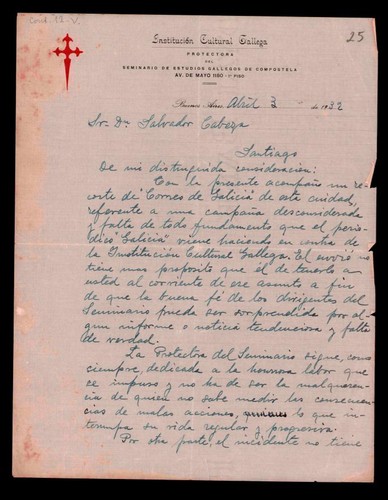 Cont. 12. V.
25
Institución Cultural Gallega
PROTECTORA
DEL
SEMINARIO DE ESTUDIOS GALLEGOS DE COMPOSTELA
AV. DE MAYO 1180 - 1er PISO
Buenos Aires, Abril 3 de 1932
Sr. Dn Salvador Cabeza
Santiago
De mi distinguida consideración:
Con la presente acompaño un re
corte de "Correo de Galicia" de esta ciudad,
referente a una campaña desconsiderada
y falta de todo fundamento que el perió-
dico "Galicia" viene haciendo en contra de
la Institución Cultural Gallega. El envio no
tiene mas propósito que el de tenerlo a
usted al corriente de ese asunto a fin
de que la buena fé de los dirigentes del
Seminario pueda ser sorprendida por al-
gun informe o noticia tendenciosa y falta
de verdad.
La Protectora del Seminario sigue, como
siempre, dedicada a la honrosa labor que
se impuso y no ha de ser la malqueren-
cia de quien no sabe medir las consecuen-
cias de malas acciones, lo que in-
terrumpa su vida regular y progresiva.
Por otra parte, el incidente no tiene